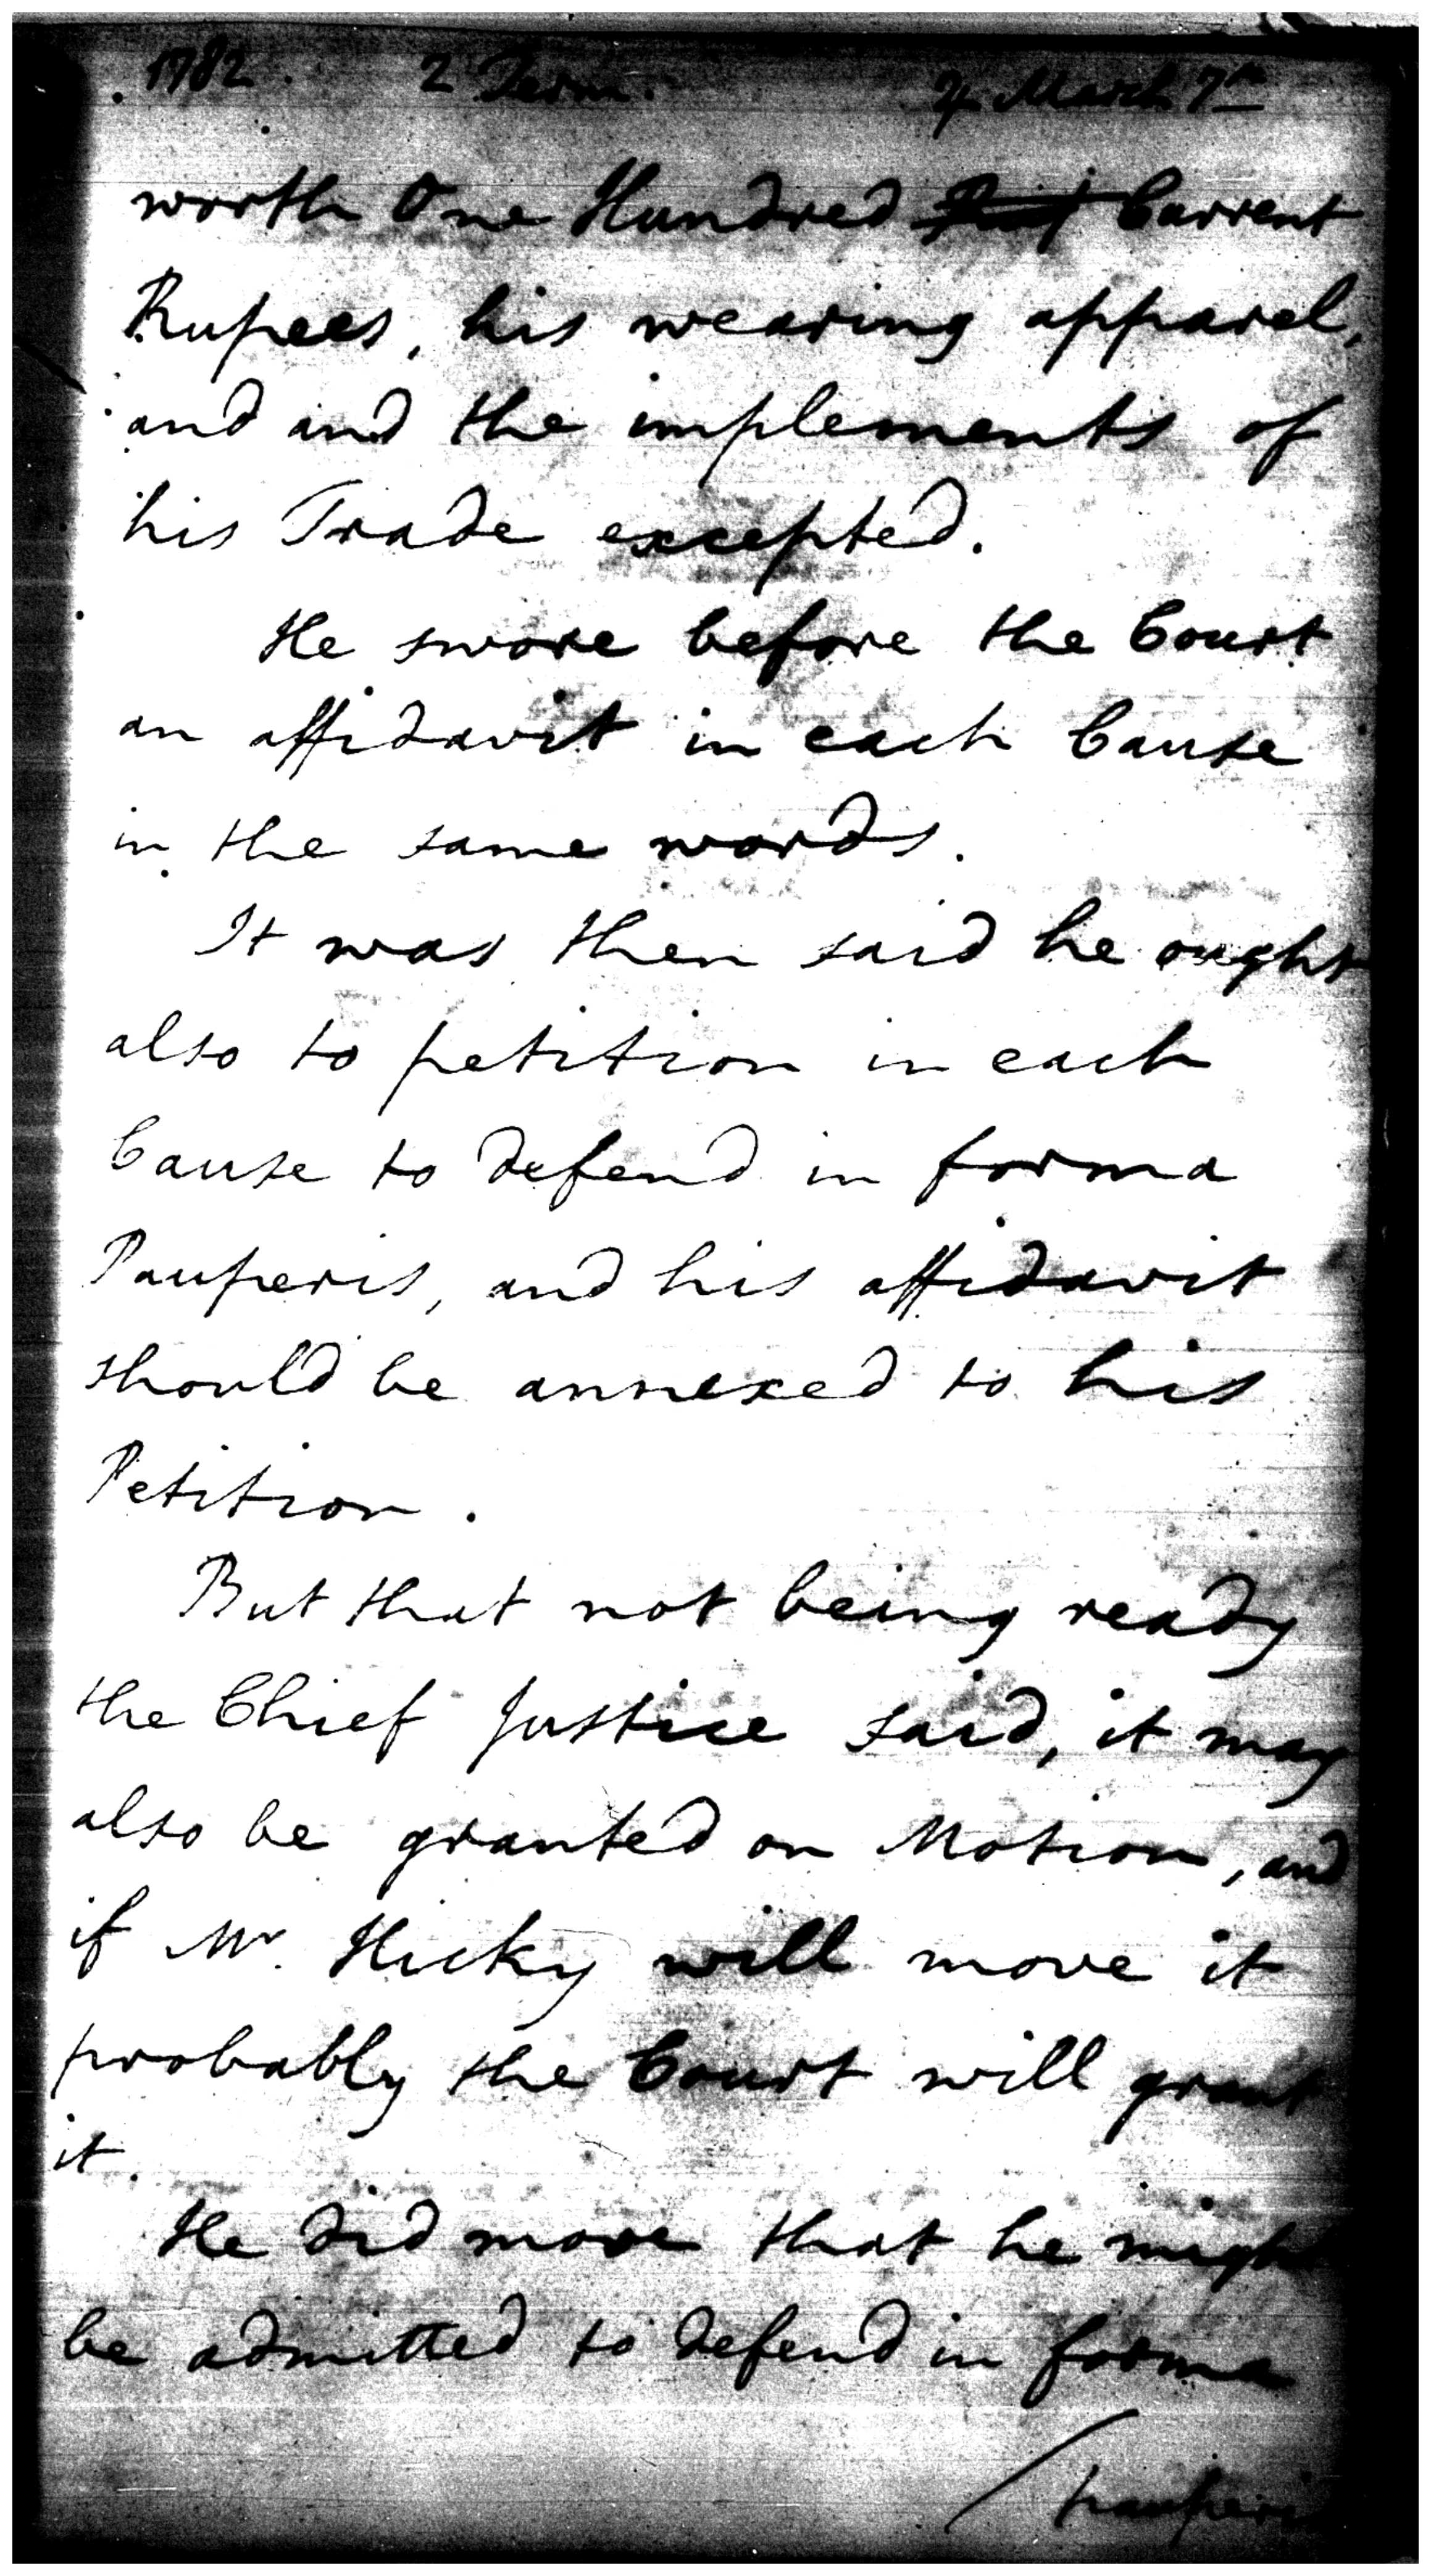 1782. 2 Term. 4 March 7th
worth One Hundred Current
Rupees, his wearing apparel,
and and the implements of
his Trade excepted.
He swore before the Court
an affidavit in each Cause
in the same words.
It was then said he ought
also to petition in each
Cause to defend in forma
Pauperis, and his affidavit
should be annexed to his
Petition.
But that not being ready
the Chief Justice said, it may
also be granted on Motion, and
if Mr. Hicky will move it
probably the Court will grant
it.
He did move that he might
be admitted to defend in forma
pauperis